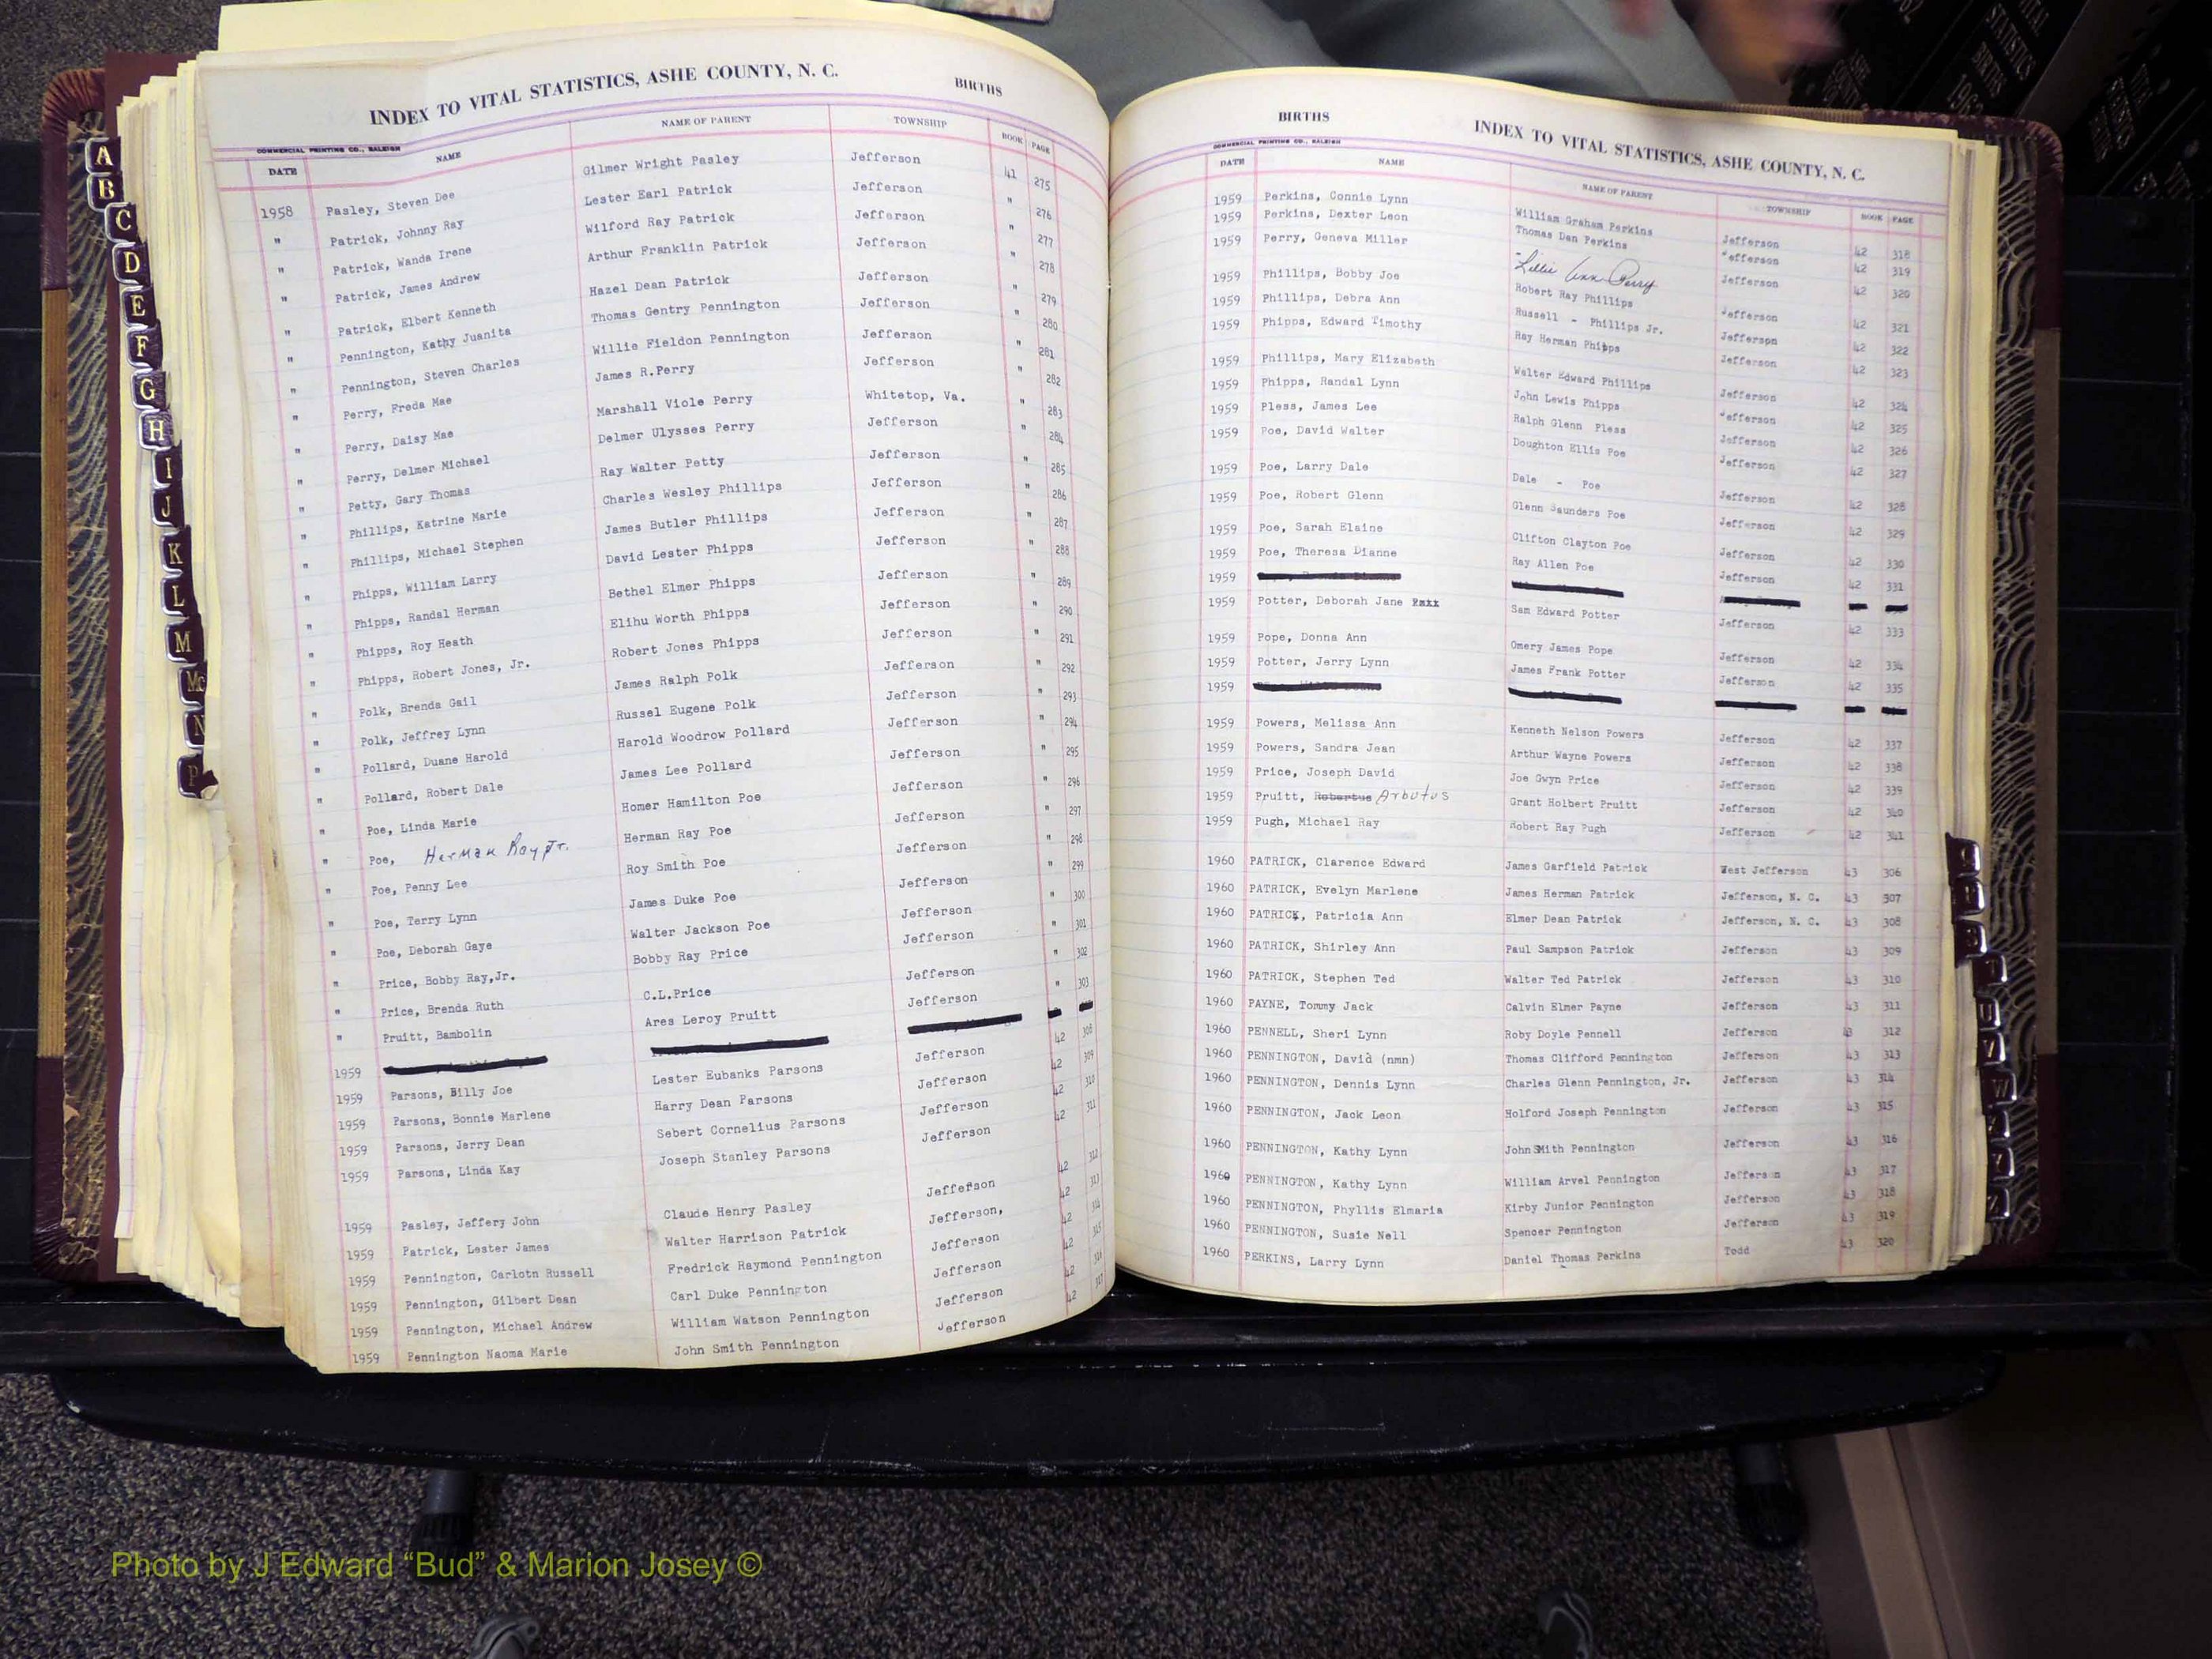 INDEX TO VITAL STATISTICS, ASHE COUNTY, N. C. BIRTHS
COMMERCIAL PRINTING CO., RALEIGH
DATE NAME NAME OF PARENT TOWNSHIP BOOK PAGE
1958 Pasley, Steven Dee Gilmer Wright Pasley Jefferson 41 275
" Patrick, Johnny Ray Lester Earl Patrick Jefferson " 276
" Patrick, Wanda Irene Wilford Ray Patrick Jefferson " 277
" Patrick, James Andrew Arthur Franklin Patrick Jefferson " 278
" Patrick, Elbert Kenneth Hazel Dean Patrick Jefferson " 279
" Pennington, Kathy Juanita Thomas Gentry Pennington Jefferson " 280
" Pennington, Steven Charles Willie Fieldon Pennington Jefferson " 281
" Perry, Freda Mae James R.Perry Jefferson " 282
" Perry, Daisy Mae Marshall Viole Perry Whitetop, Va. " 283
" Perry, Delmer Michael Delmer Ulysses Perry Jefferson " 284
" Petty, Gary Thomas Ray Walter Petty Jefferson " 285
" Phillips, Katrine Marie Charles Wesley Phillips Jefferson " 286
" Phillips, Michael Stephen James Butler Phillips Jefferson " 287
" Phipps, William Larry David Lester Phipps Jefferson " 288
" Phipps, Randal Herman Bethel Elmer Phipps Jefferson " 289
" Phipps, Roy Heath Elihu Worth Phipps Jefferson " 290
" Phipps, Robert Jones, Jr. Robert Jones Phipps Jefferson " 291
" Polk, Brenda Gail James Ralph Polk Jefferson " 292
" Polk, Jeffrey Lynn Russel Eugene Polk Jefferson " 293
" Pollard, Duane Harold Harold Woodrow Pollard Jefferson " 294
" Pollard, Robert Dale James Lee Pollard Jefferson " 295
" Poe, Linda Marie Homer Hamilton Poe Jefferson " 296
" Poe, Herman Ray Jr. Herman Ray Poe Jefferson " 297
" Poe, Penny Lee Roy Smith Poe Jefferson " 298
" Poe, Terry Lynn James Duke Poe Jefferson " 299
" Poe, Deborah Gaye Walter Jackson Poe Jefferson " 300
" Price, Bobby Ray,Jr. Bobby Ray Price Jefferson " 301
" Price, Brenda Ruth C.L.Price Jefferson " 302
" Pruitt, Bambolin Ares Leroy Pruitt Jefferson " 303
1959
1959 Parsons, Billy Joe Lester Eubanks Parsons Jefferson 42 308
1959 Parsons, Bonnie Marlene Harry Dean Parsons Jefferson 42 309
1959 Parsons, Jerry Dean Sebert Cornelius Parsons Jefferson 42 310
1959 Parsons, Linda Kay Joseph Stanley Parsons Jefferson 42 311
1959 Pasley, Jeffery John Claude Henry Pasley Jefferson 42 312
1959 Patrick, Lester James Walter Harrison Patrick Jefferson, 42 313
1959 Pennington, Carlotn Russell Fredrick Raymond Pennington Jefferson 42 314
1959 Pennington, Gilbert Dean Carl Duke Pennington Jefferson 42 315
1959 Pennington, Michael Andrew William Watson Pennington Jefferson 42 316
1959 Pennington Naoma Marie John Smith Pennington Jefferson 42 317
A
B
C
D
E
F
G
H
I
J
K
L
M
Mc
N
P
BIRTHS INDEX TO VITAL STATISTICS, ASHE COUNTY, N. C.
COMMERCIAL PRINTING CO., RALEIGH
DATE NAME NAME OF PARENT TOWNSHIP BOOK PAGE
1959 Perkins, Connie Lynn William Graham Perkins Jefferson 42 318
1959 Perkins, Dexter Leon Thomas Dan Perkins Jefferson 42 319
1959 Perry, Geneva Miller Lillie Ann Perry Jefferson 42 320
1959 Phillips, Bobby Joe Robert Ray Phillips Jefferson 42 321
1959 Phillips, Debra Ann Russell - Phillips Jr. Jefferson 42 322
1959 Phipps, Edward Timothy Ray Herman Phipps Jefferson 42 323
1959 Phillips, Mary Elizabeth Walter Edward Phillips Jefferson 42 324
1959 Phipps, Randal Lynn John Lewis Phipps Jefferson 42 325
1959 Pless, James Lee Ralph Glenn Pless Jefferson 42 326
1959 Poe, David Walter Doughton Ellis Poe Jefferson 42 327
1959 Poe, Larry Dale Dale - Poe Jefferson 42 328
1959 Poe, Robert Glenn Glenn Saunders Poe Jefferson 42 329
1959 Poe, Sarah Elaine Clifton Clayton Poe Jefferson 42 330
1959 Poe, Theresa Dianne Ray Allen Poe Jefferson 42 331
1959
1959 Potter, Deborah Jane Sam Edward Potter Jefferson 42 333
1959 Pope, Donna Ann Omery James Pope Jefferson 42 334
1959 Potter, Jerry Lynn James Frank Potter Jefferson 42 335
1959
1959 Powers, Melissa Ann Kenneth Nelson Powers Jefferson 42 337
1959 Powers, Sandra Jean Arthur Wayne Powers Jefferson 42 338
1959 Price, Joseph David Joe Gwyn Price Jefferson 42 339
1959 Pruitt, Robertus Arbutus Grant Holbert Pruitt Jefferson 42 340
1959 Pugh, Michael Ray Robert Ray Pugh Jefferson 42 341
1960 PATRICK, Clarence Edward James Garfield Patrick West Jefferson 43 306
1960 PATRICK, Evelyn Marlene James Herman Patrick Jefferson, N. C. 43 307
1960 PATRICK, Patricia Ann Elmer Dean Patrick Jefferson, N. C. 43 308
1960 PATRICK, Shirley Ann Paul Sampson Patrick Jefferson 43 309
1960 PATRICK, Stephen Ted Walter Ted Patrick Jefferson 43 310
1960 PAYNE, Tommy Jack Calvin Elmer Payne Jefferson 43 311
1960 PENNELL, Sheri Lynn Roby Doyle Pennell Jefferson 43 312
1960 PENNINGTON, David (nmn) Thomas Clifford Pennington Jefferson 43 313
1960 PENNINGTON, Dennis Lynn Charles Glenn Pennington, Jr. Jefferson 43 314
1960 PENNINGTON, Jack Leon Holford Joseph Pennington Jefferson 43 315
1960 PENNINGTON, Kathy Lynn John SMith Pennington Jefferson 43 316
1960 PENNINGTON, Kathy Lynn William Arvel Pennington Jefferson 43 317
1960 PENNINGTON, Phyllis Elmaria Kirby Junior Pennington Jefferson 43 318
1960 PENNINGTON, Susie Nell Spencer Pennington Jefferson 43 319
1960 PERKINS, Larry Lynn Daniel Thomas Perkins Todd 43 320
VITAL STATISTICS BIRTHS
ASHE
W
Photo by J Edward “Bud” & Marion Josey ©